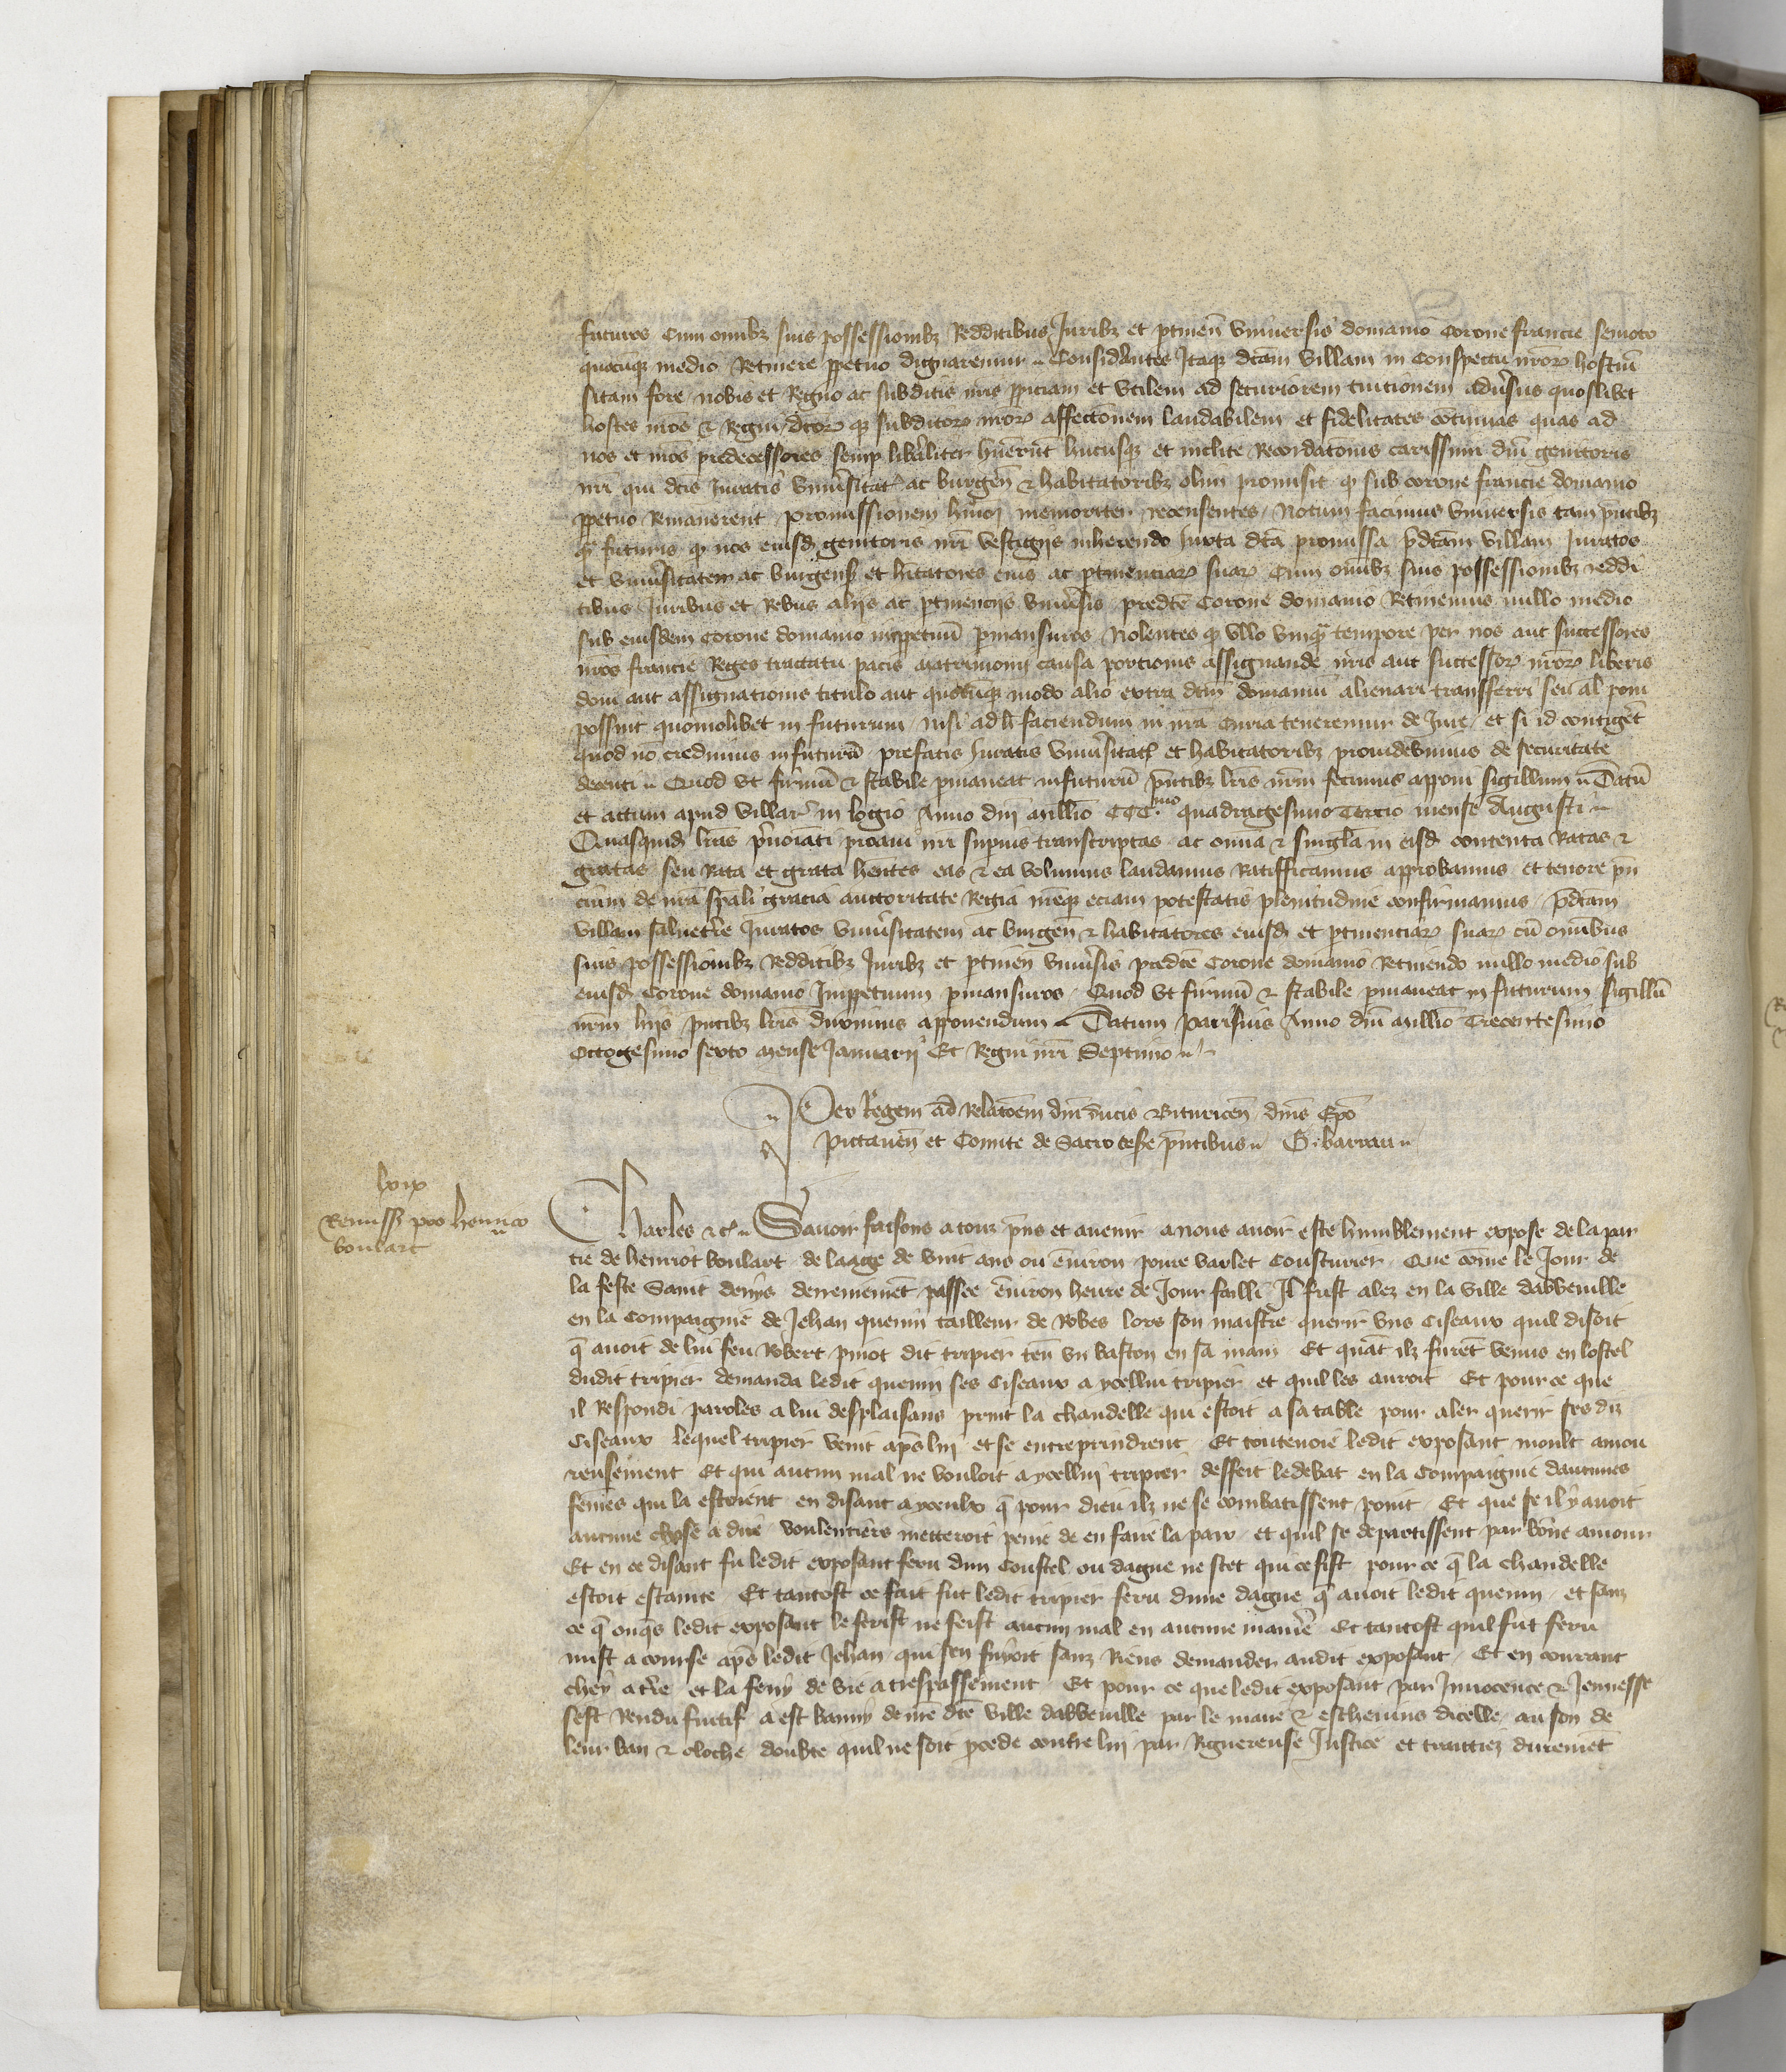 futuros cum omnibz suis possessionibz Redditibus Juribz et ptinen universis domanio Corone francie semoto
quocumqz medio Retinere ppetuo dignaremur Considantes Itaqz dcam villam in Conspectu nror hostiu
sitam fore nobis et Regno ac subditis nris ppiciam et vtilem ad securiorem tuitionem adusus quoslibet
hostes nros & Regni dcor qz subditor nror affectionem laudabilem et fidelitates continuas quas ad
nos et nros predecessores semp liberaliter huerut hucusqz et inclite Recordationis carissimi dni genitoris
nri qui dcis Juratis vniusitati ac burgen & habitatoribz olim promisit qz sub corone francie domanio
ppetuo Rmanerent promissionem hmoi memoriter recensentes Notum facimus vniversis tam pntibz
qz futuris qz nos eiusd genitoris nri vestigijs inherendo Juxta dca promissa pdcam villam Juratos
et vniusitatem ac burgens et hitatores eius ac ptinenciar suar Cum omibz suis possessionibz reddi
tibus Juribus et Rebus alijs ac ptinencijs vniusis predce Corone domanio Retinemus nullo medio
sub eiusdem Corone domanio inppetuu pmansuros Nolentes qz vllo vnqz tempore per nos aut successores
nros francie Reges tractatu pacis matrimonij causa portionis assignande nris aut successor nror liberis
doni aut assignationis titulo aut quocumqz modo alio extra dcm domaniu alienari transferri seu al poni
possint quomolibet in futurum nisi ad h faciendum in nra Curia teneremur de Jure et si id contiget
quod no credimus infuturu prefatis Juratis vniusitati et habitatoribz prouidebimus de securitate
decenti Quod vt firmu & stabile pmaneat infuturu pntibz lris nrm fecimus apponi sigillum Datu
et actum apud villar in logio Anno dni millio CCC.mo quadragesimo Tercio mense Augusti
Quasquid lras pnoiati proaui nri supius transcriptas ac omnia & singla in eisd contenta Ratas &
gratas seu Rata et grata hentes eas & ea volumus laudamus Ratifficamus approbamus et tenore pn
cium de nra spali gracia auctoritate Regia nreqz eciam potestatis plenitudine confirmamus pdcam
villam saluetre Juratos vniusitatem ac burgen & habitatores eiusd et ptinenciar suar cu omibus
suis possessionibz Redditibz Juribz et ptinen vniusis predce Corone domanio Retinendo nullo medio sub
eiusd Corone domanio Imppetuum pmansuros Quod vt firmu & stabile pmaneat in futurum sigillu
nrm hijs pntibz lris duximus apponendum Datum parisius Anno dni millio Trecentesimo
Octogesimo sexto mense Januarij Et Regni nri Septimo
Per Regem ad Relatoem dni ducis Bituricen dnis Epo
pictauen et Comite de Sacro cesre pntibus G. barrau
lxix
Remiss pro henrico
boulart
Charles &c Sauoir faisons a touz pns et auenir a nous auoir este humblement expose de la par
tie de henriot boulart de laage de vint ans ou enuiron poure varlet Cousturier Que come le Jour de
la feste Saint denys derreniemet passee enuiron heure de Jour failli Il fust alez en la ville dabbeuille
en la Compaignie de Jehan quenin tailleur de Robes lors son maistre querir vns Ciseaux quil disoit
q auoit de lui feu Robert pinot dit tripier ten vn baston en sa main Et quat ilz furet venus en lostel
dudit tripier demanda ledit quenin ses Ciseaux a ycellui tripier et quil les auroit Et pour ce que
il Respondi paroles a lui desplaisans prinst la chandelle qui estoit a sa table pour aler querir ses diz
Ciseaux lequel tripier vint aps lui et se entreprindrent Et toutevoie ledit exposant moult amou
reusement Et qui aucun mal ne vouloit a ycellui tripier desseit le debat en la Compaignie daucunes
femes qui la estoient en disant a yceulx q pour dieu ilz ne se combatissent point Et que se il y auoit
aucune chose a dire voulentiers metteroit peine de en faire la paix et quil se departissent par bone amour
Et en ce disant fu ledit exposant feru dun Coustel ou dague ne scet qui ce fist pour ce q la chandelle
estoit estainte Et tantost ce fait fut ledit tripier feru dune dague q auoit ledit quenin et sanz
ce q onqs ledit exposant le ferist ne feist aucun mal en aucune maniere Et tantost quil fut feru
mist a course aps ledit Jehan qui sen fuyoit sanz Riens demander audit exposant Et en courant
chey a tre et la feny de vie a trespassement Et pour ce que ledit exposant par Innocence & Jeunesse
sest Rendu fuitif a est banny de nre dte ville dabbeuille par le maire & escheuins dicelle au son de
leur ban & cloche doubte quil ne soit pcede contre lui par Riguereuse Justice et traittiez duremet